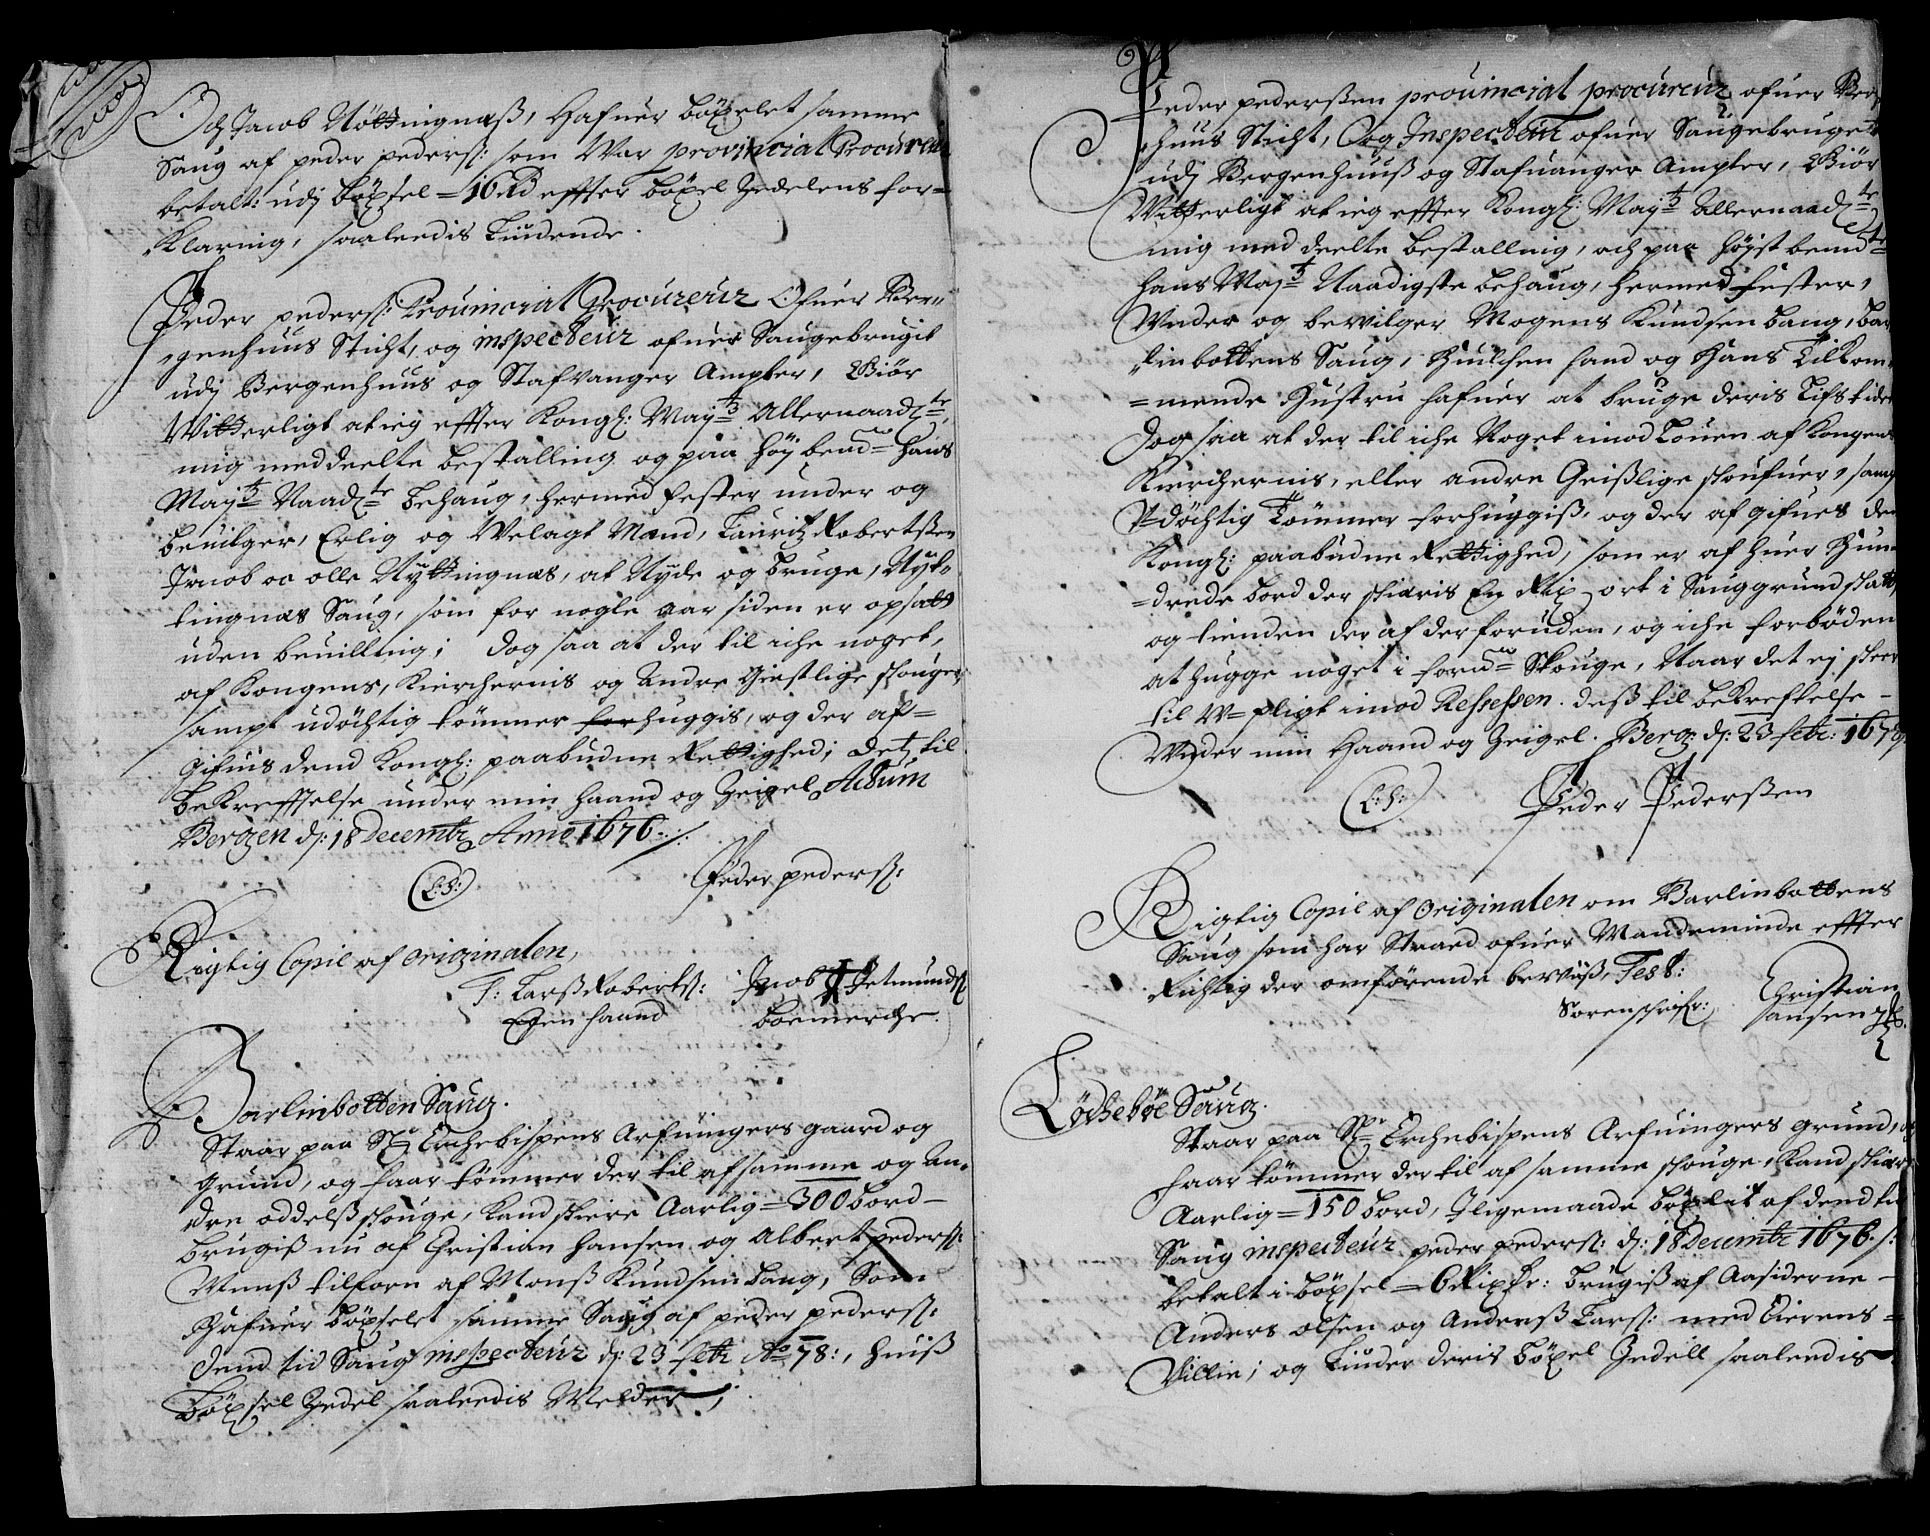 Och Jacob Nöttingnæß, Hafuer böxelet samme
Saug af peder peders: som War provincial Procureur
betalt: udj böxsel = 16 Rd effter böxel Zedelens for=
Klaring, saaleedis Liudende.
Peder peders: Prouincial Procureur Ofuer Ber=
genhuus Sticht, og inspecteur ofuer Saugebrugit
udj Bergenhuus og Stafvanger Ampter, Giör
Witterligt at ieg effter Kongl: Mayts Allernaadte
mig meddeelte bestalling og paa höybemte Hans
Mayts Naadte behaug, hermed fester under og
beuilger, Erlig og Welagt Mand, Lauritz Robertsen
Jacob oc olle Nyttingnæs, at Nyde og bruge, Nyt=
tingnæs Saug, som for nogle aar siden er opsatt
uden beuilling; dog saa at der til iche noget,
af Kongens, Kierchernis og Andre Giestlige skouger,
sampt udöchtig tömmer forhuggis, og der af=
gifuis dend Kongl: paabudne Rettighed; Detz til
bekrefftelse under min haand og Zeigel Actum
Bergen dj: 18 Decembr Anno 1676:/:
(L:S:)
Peder peders:
Rigtig Copie af originalen,
T: Larß Roberts: Jacob Jetmunds
Egen haand boemerche.
Barlinbotten Saug.
Staar paa Sl Erchebispens Arfuingers gaard og
grund, og faar tömmer der til af samme og An=
dre oddelßskouge, kand skiere Aarlig = 300 bord —
brugiß nu af Christian Hansen og Albert peders:
Menß tilforn af Monß Knudsen bang, Som
Hafuer böxselet samme Saug af peder peders:
dend tid Saug inspecteur dj: 23 febr Ao 78:, huiß
böxsel Zedel saaleedis Melder;
Peder pederßen prouincial procureur ofuer Ber
huus Sticht, Og Inspecteur ofuer Saugebruget
udj Bergenhuuß og Stafuanger Ampter, Giör
Witterligt at ieg effter Kongl: Mayts Allernaadte
mig med deelte bestalling, och paa höyst bemte
hans Mayts Naadigste behaug, hermed fester,
Vnder og bewilger Mogens Knudsen bang, bar
linbottens Saug, Huilchen hand og Hans Tilkom=
=mende Hustru hafuer at bruge deris Lifs tider
Dog saa at der til iche Noget imod Louen af Kongens
Kierchernis, eller andre Geistlige skoufuer, sampt
Vdöchtig Tömmer forhuggiß, og der af gifues den
Kongl: paabudne Rettighed, som er af huer Hun=
=drede bord der skieris En Rix ort i Sauggrund skatt
og tienden der af der foruden, og iche forböden
at hugge noget i forne Skouge, Naar det ej skeer
til V=pligt imod Recessen. deß til bekreftelse —
Vnder min Haand og Zeigel. Berg: dj: 23 febr: 1678
(L:S:) Peder Pederßen
Rigtig Copie af originalen om Barlinbottens
Saug som har Staaed ofuer Mandeminde effter
Richtig der omförende bewiiß, Test:
Christian
Sorenschrifr: Hansen
Löchebøe Saug.
Staar paa Sl Erchebispens Arfuingers grund,
faar tömmer der til af samme skouge, Kand skier
Aarlig = 150 bord, Iligemaade böxlit af dend tid
Saug inspecteur peder peders: dj: 18 Decembr 1676./:
betalt i böxsel = 6 Rixdr: brugiß af Aasiderne —
Anders olsen og Anderß Larss: med Eierens=
Villie; og Liuder deris böxel Zedell saaleedis